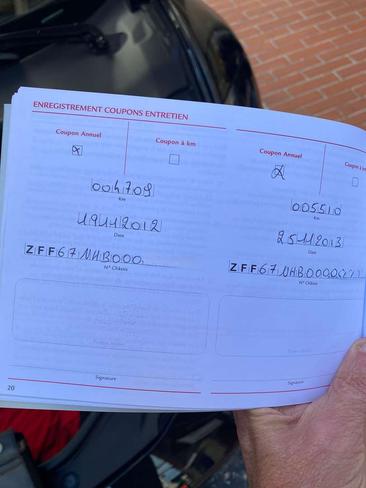 ENREGISTREMENT COUPONS ENTRETIEN
Coupon Annuel
Coupon à km
004709
Km
19112012
Date
ZFF67NHB000
N° Châssis
Signature
20
Coupon Annuel
Coupon à km
005510
Km
25112013
Date
ZFF67NHB000
N° Châssis
Signature